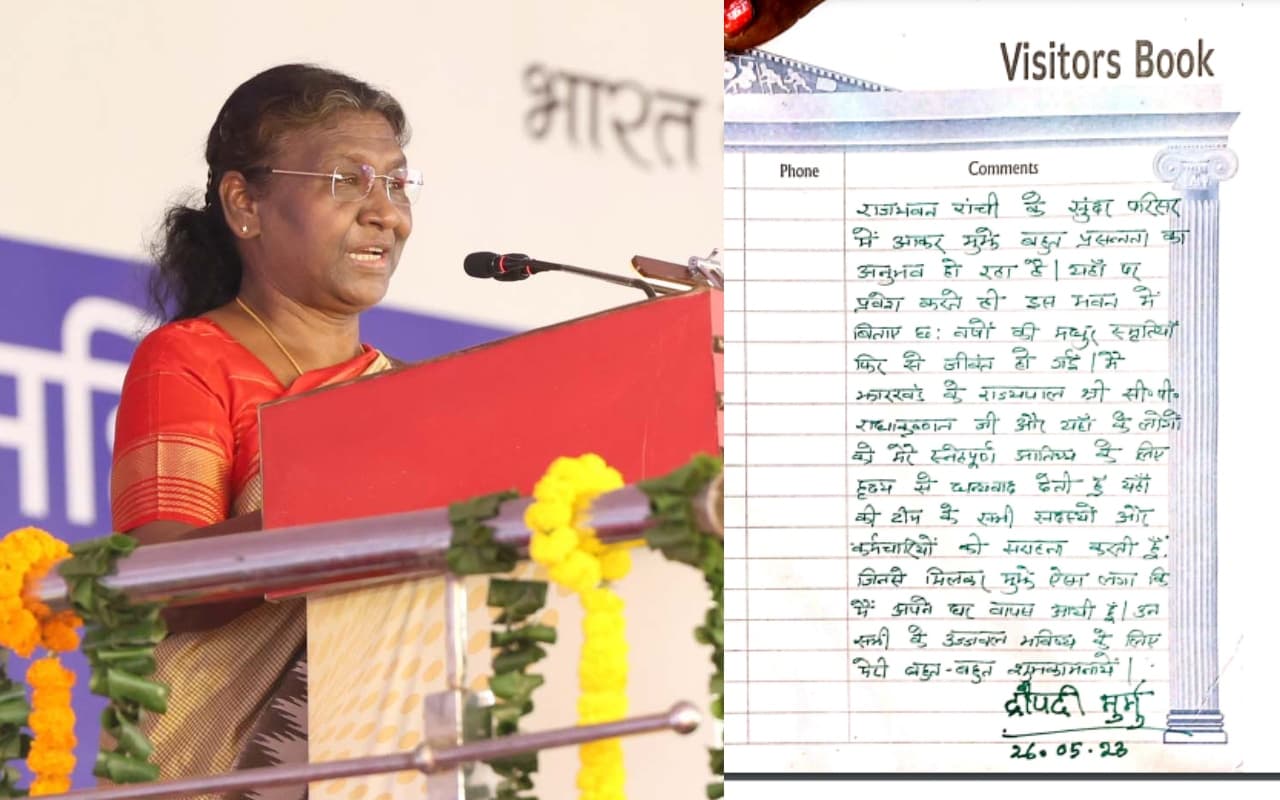 भारत
Visitors Book
Phone
Comments
राजभवन रांची के सुंदर परिसर
में आकर मुझे बहुत प्रसन्नता का
अनुभव हो रहा है। यहाँ पर
प्रवेश करते ही इस भवन में
बिताए छ: वर्षों की मधुर स्मृतियाँ
फिर से जीवंत हो गईं। मैं
झारखंड के राज्यपाल श्री सी॰पी॰
राधाकृष्णन जी और यहाँ के लोगों
को मेरे स्नेहपूर्ण आतिथ्य के लिए
हृदय से धन्यवाद देती हूँ यहाँ
की टीम के सभी सदस्यों और
कर्मचारियों को सराहना करती हूँ.
जिनसे मिलकर मुझे ऐसा लगा कि
मैं अपने घर वापस आयी हूं। उन
सभी के उज्जवल भविष्य के लिए
मेरी बहुत-बहुत शुभकामनायें।
द्रौपदी मुर्मु
26.05.23